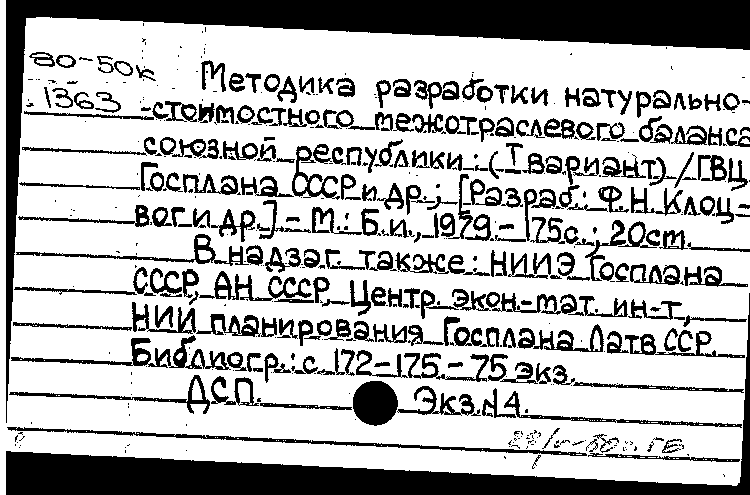 80-50к
1363
Методика разработки натурально-
-стоимостного межотраслевого баланса
союзной республики: (I вариант) / ГВЦ
Госплана СССР и др.; [Разраб.: Ф.Н. Клоц-
вог и др.] - М.: Б.и., 1979. - 175с.; 20см.
В надзаг. также: НИИЭ Госплана
СССР, АН СССР, Центр. экон-мат. ин-т,
НИИ планирования Госплана Латв ССР.
Библиогр.: с. 172-175. - 75 экз.
ДСП. Экз. N4.